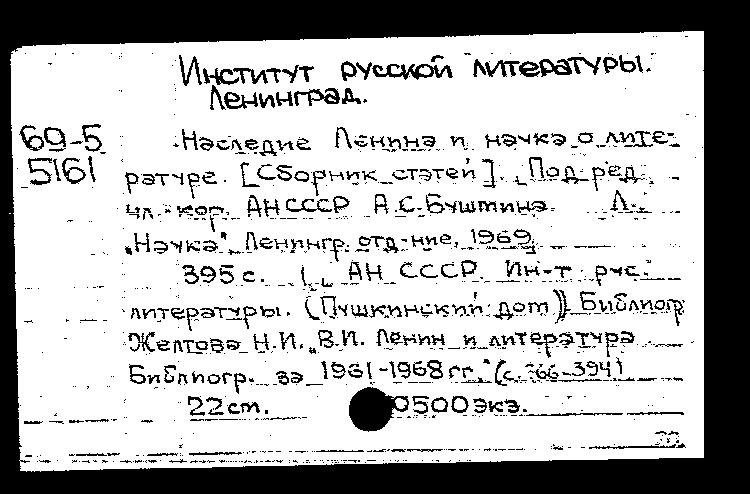 Институт русской литературы.
Ленинград.
69-5 Наследие Ленина и наука о лите-
5161 ратуре. [Сборник статей]. Под ред.
чл.-кор. АН СССР А.С. Бушмина. Л.,
"Наука", Ленингр. отд-ние, 1969.
395 с. (АН СССР. Ин-т рус.
литературы. (Пушкинский дом)) Библиогр
Желтова Н.И. "В.И. Ленин и литература
Библиогр. за 1961-1968 гг." (с. 394)
22 см. 0500 экз.